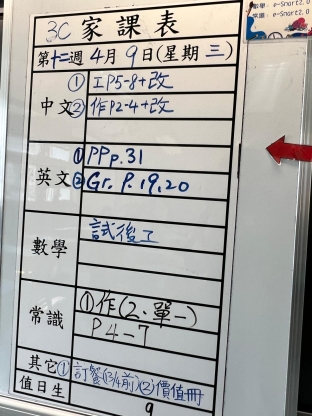 數學：e-Smart2.0
常識：e-Smart2.0
3C 家課表
第十二週4月9日(星期三)
中文
① 工P5-8+改
② 作P2-4+改
英文
① PP p.31
② Gr. P.19,20
數學
試後工
常識
①作(2.單一)
P4-7
其它
①訂餐(13/4前)②價值冊
值日生
9